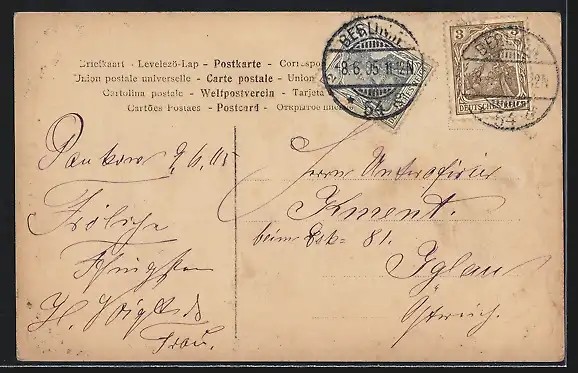 Briefkaart - Levelező-Lap - Postkarte - Correspo
Union postale universelle - Carte postale - Union
Cartolina postale - Weltpostverein - Tarjeta
Cartões Postaes - Postcard - Открытое
BERLIN
8.6.05. 11-12N
54
3 3
DEUTSCHES REICH
BERLIN
54
Pankow 9/6. 05
Fröhliche
Pfingsten
H. Voigt u.
Frau.
Herrn Unteroffizier
Kment.
beim Esk= 81.
Iglau
Östreich.